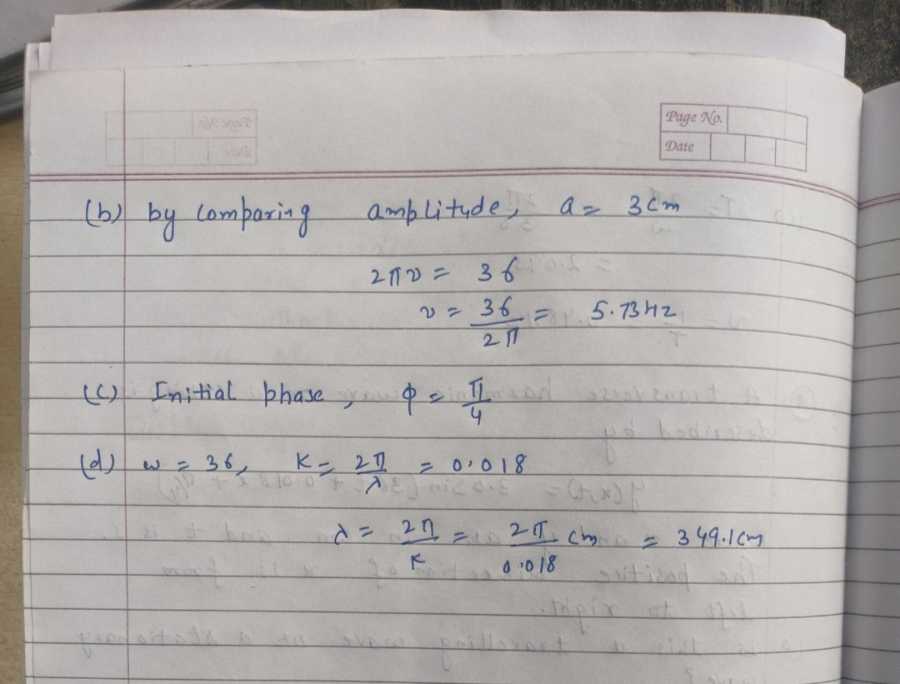 Page No.
Date
(b) by Comparing amplitude, a = 3 cm
2πν = 36
ν = 36/2π = 5.73 Hz
(c) Initial phase, φ = π/4
(d) ω = 36, K = 2π/λ = 0.018
λ = 2π/K = 2π/0.018 cm = 349.1 cm